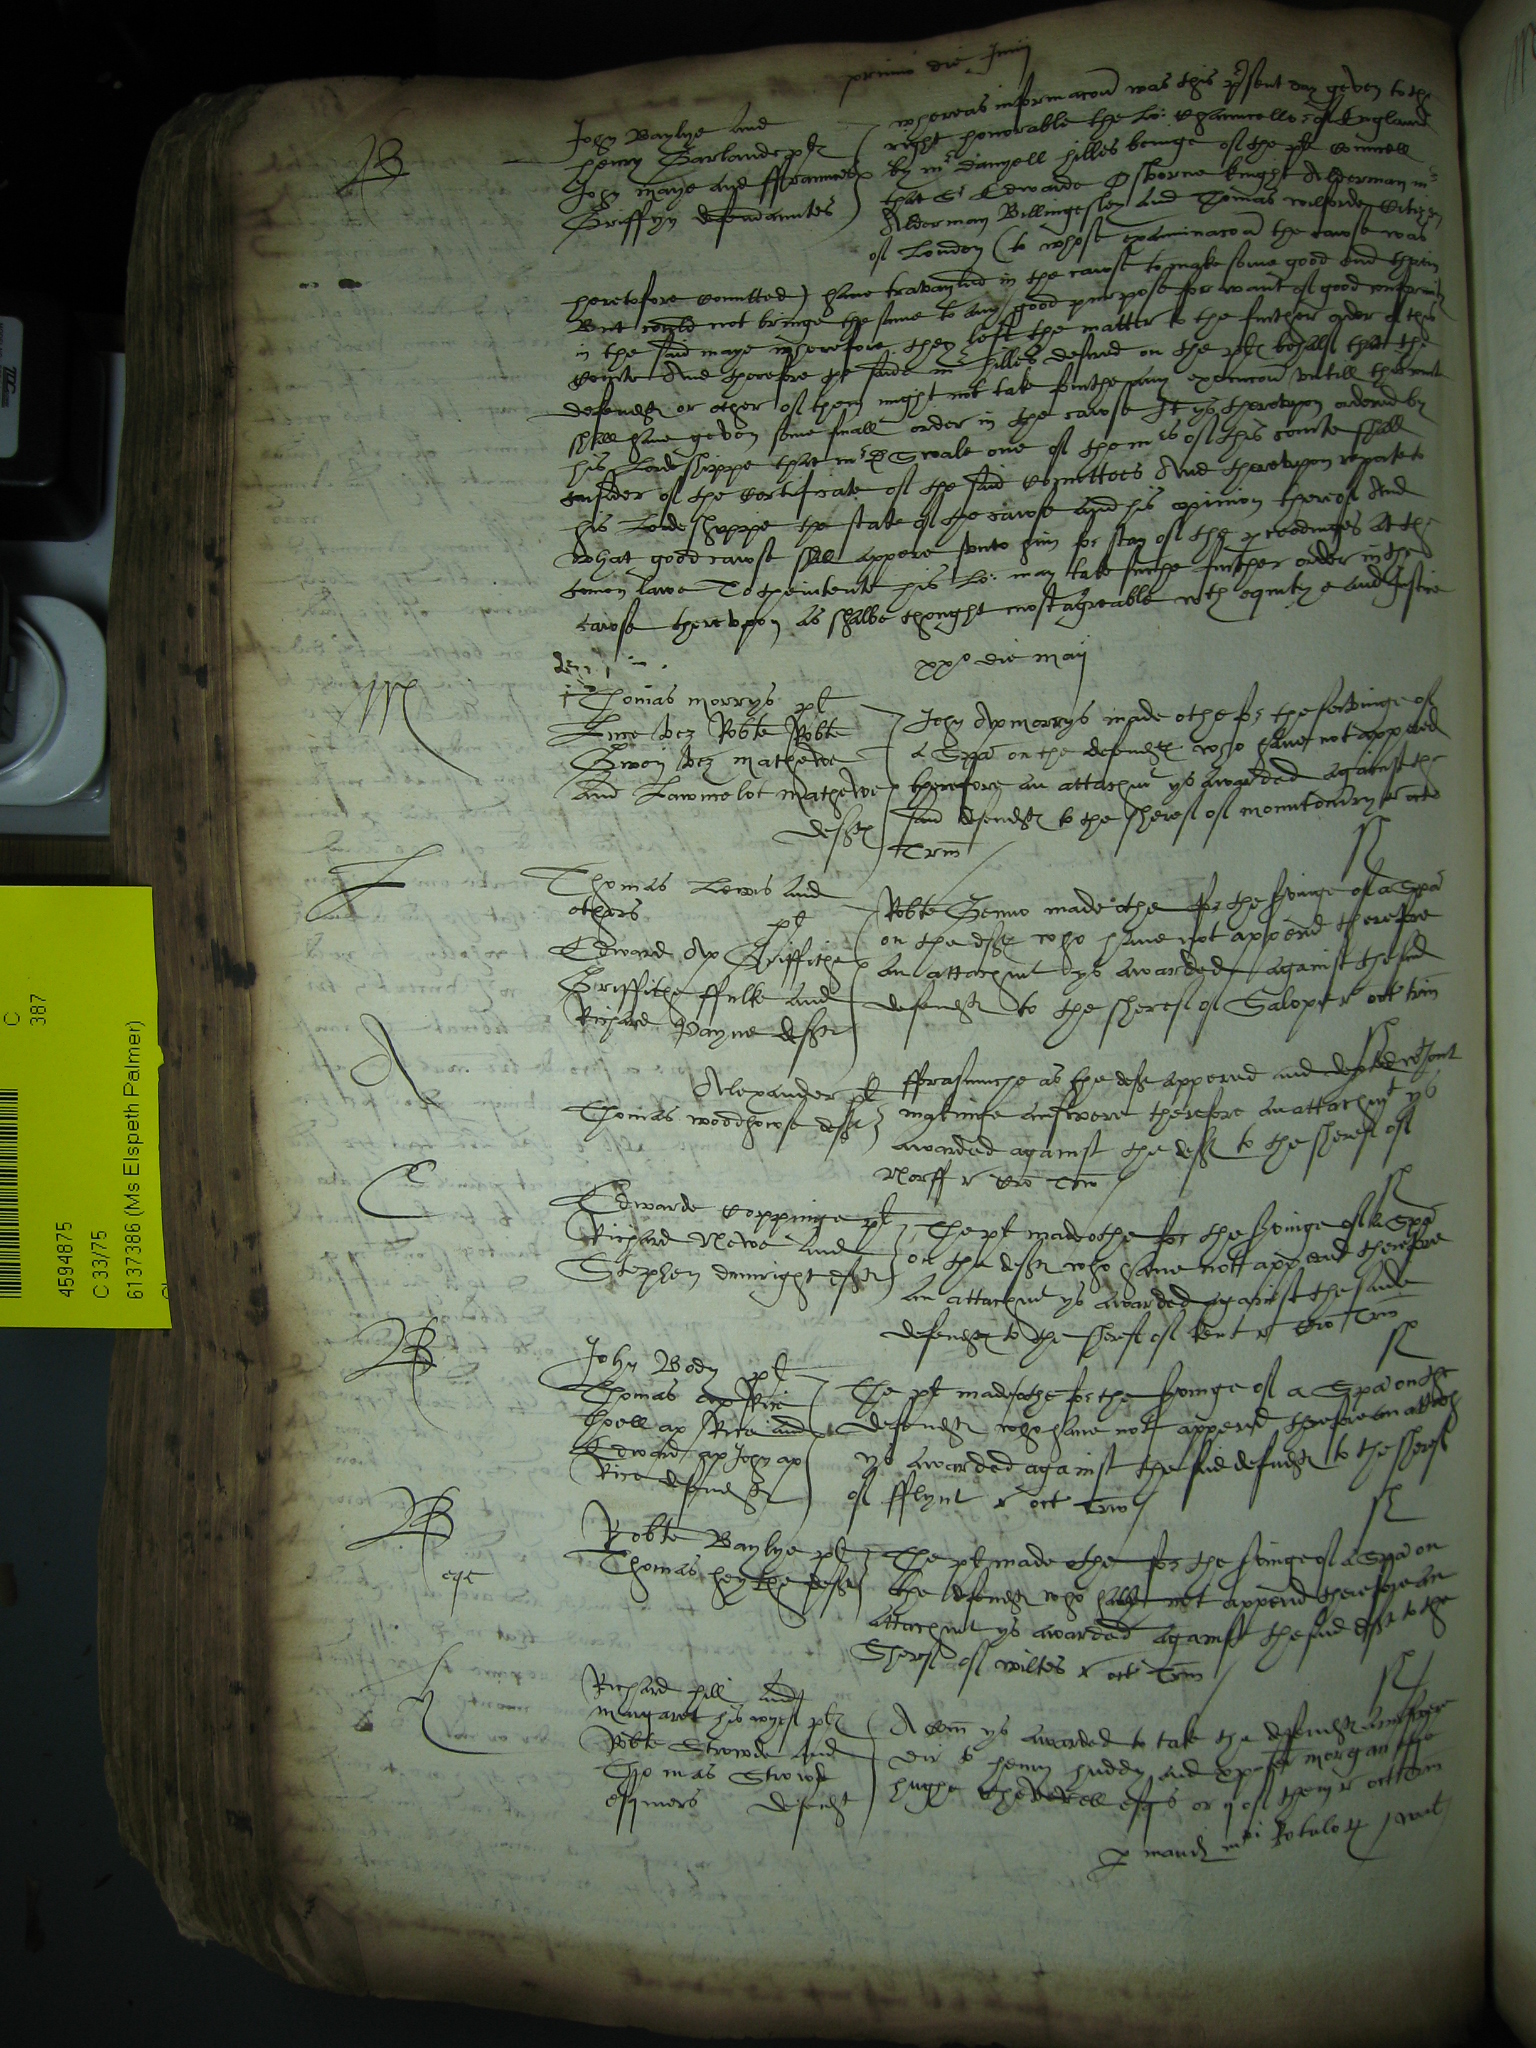 primo die Junij
B
John Baylye and
Henry Garlande pltes
John Maye and ffrauncis
Griffyn defendauntes
whereas informacon was this present day geven to the
right honorable the Lo: Chauncellor of England
by mr Danyell Hilles beinge of the plt councell
that Sr Edwarde Osborne knight Alderman mr
Alderman Billingesley and Thomas Wilforde Citizen
of London (to whose examinacon the cause was
heretofore comitted) have travayled in the cause to make some good end therin
But could not bringe the same to any good purpose for want of good conformity
in the said maye wherefore they left the matter to the further order of this
courte And therefore the saide mr Hilles desired on the pltes behalf that the
defendtes or other of them might not take furthe any execucon untill the courte
shall have geven some finall order in the cause It ys thereupon ordered by
his Lordshippe that mr D Swale one of the mrs of this courte shall
consider of the certificate of the said comittees And thereupon reporte to
his Lordeshippe the state of the cause and his opinion therof And
what good cause shall appere unto him for stay of the proceedinges at the
comon lawe To thentente his Lo: may take suche further order in the
cause thereupon as shalbe thought most agreable with equity and Justice
xxo die maij
M
Thomas Morrys plt
Lewe verz Robte Robte
Gwyn verz Mathewe
and Lawncelot Mathewe
deftes
John Apmorrys made othe for the servinge of
a Spa on the defendtes who have not appered
therefore an attachmt ys awarded against the
said defendtes to the sheref of Mountgomry r octo
Trin
L
Thomas Lewis and
others plt
Edward Ap Griffithe
Griffithe ffulke and
Richard Payne deftes
Robte Benno made othe for the servinge of a Spa
on the deftes who have not appered therefore
an attachmt ys awarded against the said
defendtes to the sheref of Salop r oct trin
A
Alexander plt
Thomas Woodhowse deft
fforasmuche as the deft appered and depted wthout
makinge answere therefore an attachmt ys
awarded against the deft to the sheref of
Norff r cro Trin
C
Edwarde Coppinge plt
Richard Newe and
Stephen Dunright deftes
The plt made othe for the servinge of a Spa
on the deftes who have nott appered therefore
an attachmt ys awarded against the saide
defendtes to the sheref of Kent r cro Trin
B
John Body plt
Thomas ap Rice
Howell ap Rice and
Edward ap John ap
Rice defendtes
The plt made othe for the servinge of a Spa on the
defendtes who have not appered therefore an attach
ys awarded against the said defendtes to the sheref
of fflynt r oct Trin
B
Robte Baylye plt
Thomas Heythe deft
The plt made othe for the servinge of a Spa on
the defendt who hath not appered therefore an
attachmt ys awarded against the said deft to the
Sheref of wiltes r octo Trin
H
Richard Hill and
Margaret his wyef pltes
Robte Strowde and
Thomas Strowde
esquiers defendt
A Com ys awarded to take the defendtes answere
dir to Henry Huddy and Xpofer Morgan
Hughe Cheverell esqs or ij of them r oct trin
p mand mri Rotulor
4594875
C 33/75
6137386 (Ms Elspeth Palmer)
C
387